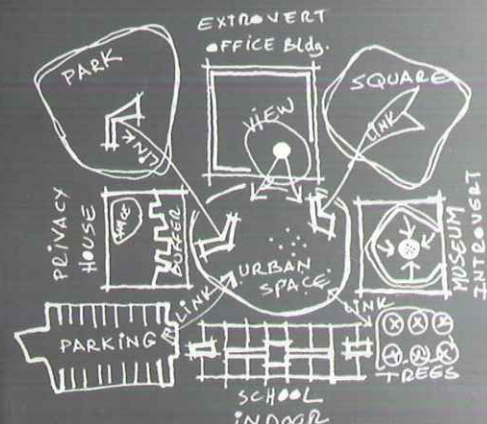 EXTROVERT
OFFICE Bldg.
PARK
VIEW
SQUARE
LINK
LINK
PRIVACY
HOUSE
BUFFER
URBAN
SPACE
MUSEUM
INTROVERT
LINK
LINK
PARKING
TREES
SCHOOL
INDOOR